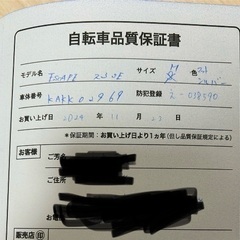 自転車品質保証書
モデル名 ESCAPE サイズ 色 シルバー
車体番号 KAKK02969 防犯登録
お買い上げ日 2024 年 11 月 23 日
*保証期間：お買い上げ日より1ヵ年（但し品質保証規定による）
お客様
お名前
ご住所
販売店